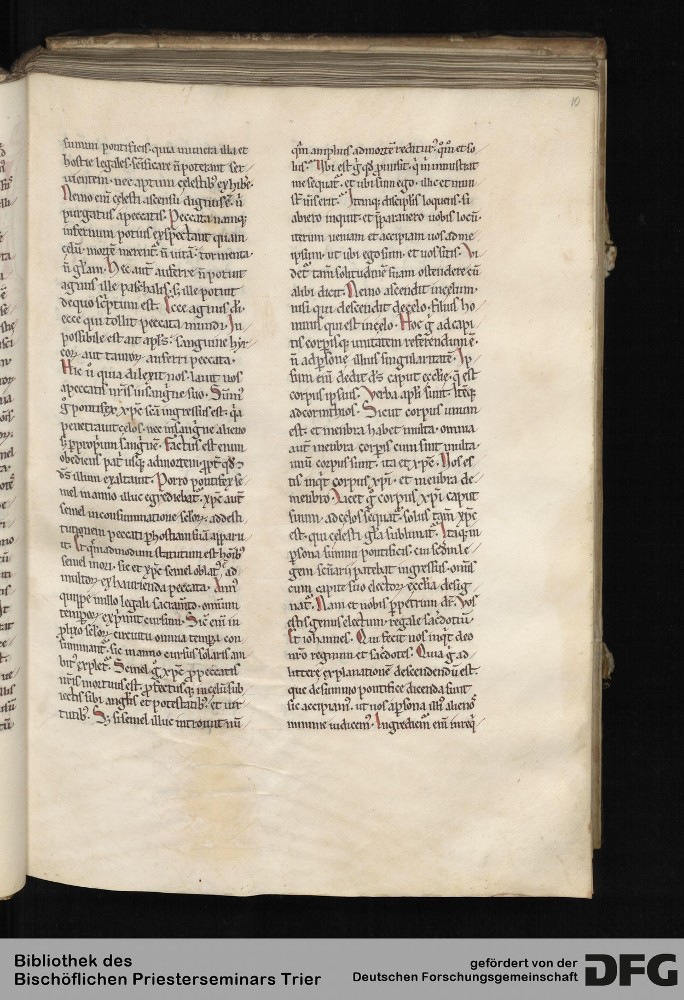 10
summi pontificis. quia munera illa et
hostie legales. scificare n̄ poterant ser
uientem. nec aptum celestib; exhibe
Nemo eni celesti ascensu dignus ē. n̄
purgatus apeccatis. Peccata namq;
infernum potius exspectant quam
celū. mortē merent. n̄ uitā. tormenta.
n̄ gliam. Hec aut auferre n̄ potuit
agnus ille paschalis. s; ille potuit
dequo scriptum est. Ecce agnus di.
ecce qui tollit peccata mundi. In
possibile est ait apls. sanguine hyr
coꝝ. aut tauroꝝ. auferri peccata.
Hic u quia dilexit nos. lauit nos
apeccatis nris insanguine suo. Sum
g pontifex xpc sca ingressus est. qa
penetrauit celos. nec insanguine alieno
s; p proprium sanguinē. Factus est enim
obediens patri usq; admortem. ppt qd
ds illum exaltauit. Porro pontifex se
mel inanno illuc egrediebat. xpc aut
semel inconsummatione seloꝝ. addesti
tutionem peccati p hostiam suā apparu
it. Et quemadmodum statutum est hoib;
semel mori. sic et xpc semel oblat; ē. ad
multoꝝ exhaurienda peccata. Ann;
quippe in illo legali sacramto. omnium
tempoꝝ exprimit cursum. Sic eni in
plixo seloꝝ circuitu omnia tempra con
summant. sic inanno cursus solaris am
bit; explet. Semel g xpc ppeccatis
nris mortuus est. pfectusq; incelū sub
iectis sibi anglis et potestatib; et uir
tutib;. S; si semel illuc introiuit nū
qm amplius admortē reditur;. qm et so
lus. Ubi est g qd pmisit. q m ministrat
me sequat. et ubi sum ego. illic et mini
ster m erit. Itemq; discipulis loquens. si
abiero inquit et preparauero uobis locū.
iterum ueniam et accipiam uos adme
ipsum. ut ubi ego sum et uos sitis. Vi
det tam solitudinē suam ostendere cū
alibi dicit. Nemo ascendit in celum.
nisi qui descendit decelo. filius ho
minis qui est incelo. Hoc g ad capi
tis corporisq; unitatem referendum ē.
n̄ adpersone illius singularitatē. Ip
sum eni dedit ds caput ecclie. q est
corpus ipsius. Verba apli sunt. Itēq;
adcorinthios. Sicut corpus unum
est. et menbra habet multa. omnia
aut menbra corporis cum sint multa.
unū corpus sunt. ita et xpc. Vos es
tis inqt corpus xpi. et menbra de
menbro. Licet g corpus xpi caput
suum. ad celos sequat. solus tam xpc
est. qui celesti gla sublimat. Itaq; in
psona summi pontificis. cui sedm le
gem scuarii patebat ingressus. omis
cum capite suo electoꝝ ecclia desig
nat. Nam et nobis p petrum dr. Vos
estis genus electum. regale sacdotiū.
Et iohannes. Qui fecit nos inqt deo
nro regnum et sacdotes. Quia g ad
littere explanationē descendendū est.
que desummo pontifice dicenda sunt
sic accipiam. ut nos apsona illi; alienos
minime iudicem;. Ingrediem eni inreq
Bibliothek des
Bischöflichen Priesterseminars Trier
gefördert von der
Deutschen Forschungsgemeinschaft
DFG